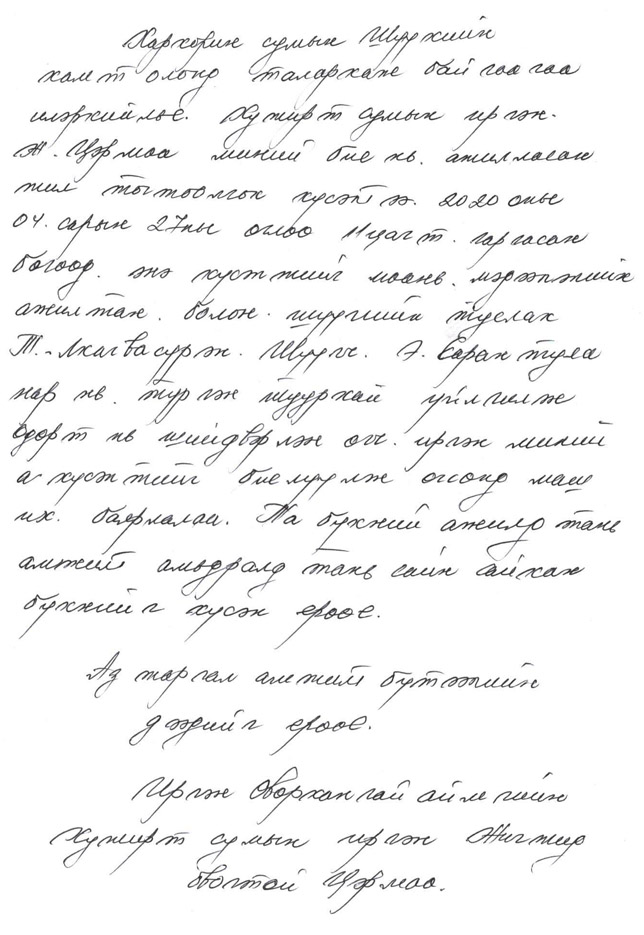 Хархорин сумын Шүүхийн
хамт олонд талархаж байгаагаа
илэркийлье. Хужирт сумын иргэн.
Ж. Цэрмаа миний бие нь. ажилласан
жил тогтоолгох хүсэлтээ. 2020 оны
04. сарын 27ны өглөө 11цагт. гаргасан
бөгөөд. энэ хүсэлтийг маань. мэргэжлийн
ажилтан. болон. шүүгчийн туслах
Т. Лхагвасүрэн. Шүүгч. Э. Сарантуяа
нар нь. түргэн шуурхай үйлчилж
өдөрт нь шийдвэрлэж өгч. иргэн миний
хүсэлтийг биелүүлж өгсөнд маш
их. баярлалаа. Та бүхний ажилд тань
амжилт амьдралд тань сайн сайхан
бүхнийг хүсэн ерөөе.
Аз жаргал амжилт бүтээлийн
дээдийг ерөөе.
Иргэн Өвөрхангай аймгийн
Хужирт сумын иргэн Жигжид
овогтой Цэрмаа.